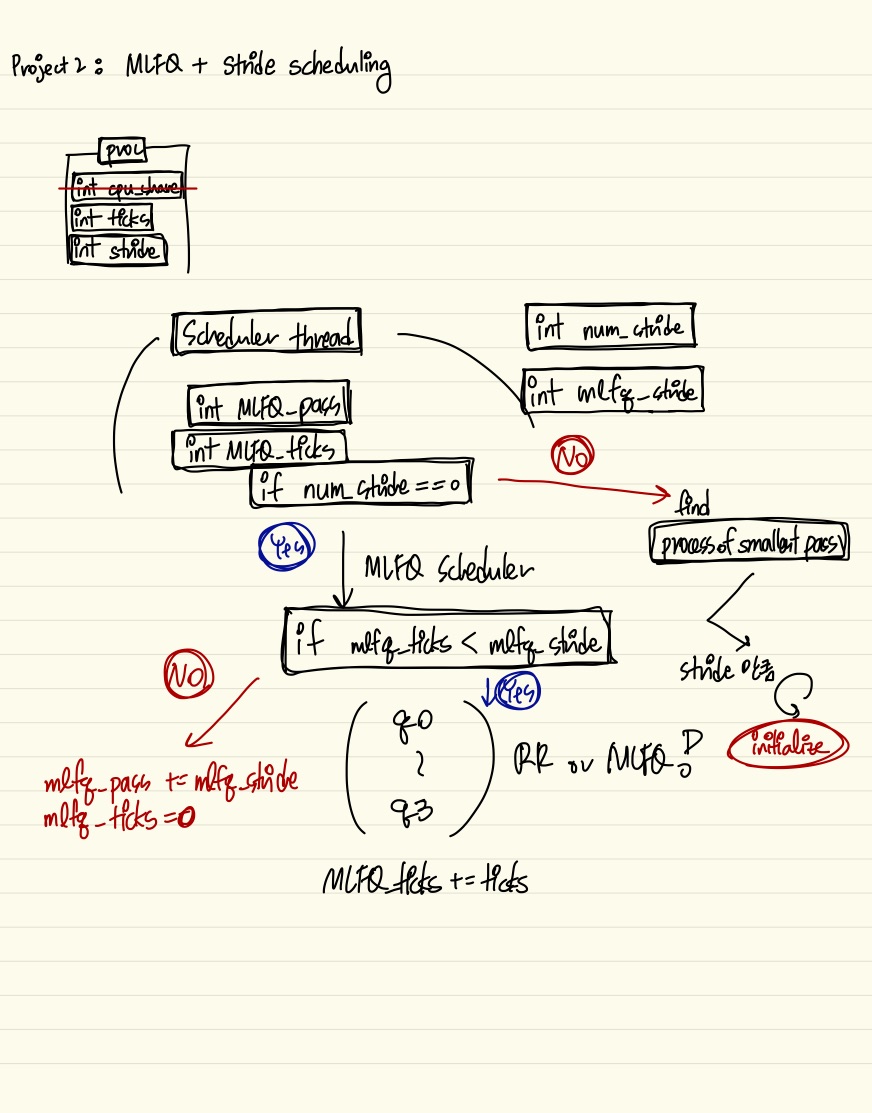 Project 2 : MLFQ + Stride scheduling
proc
int cpu_share
int ticks
int stride
Scheduler thread
int num_stride
int mlfq_stride
int MLFQ_pass
int MLFQ_ticks
if num_stride == 0
No
find
process of smallest pass
Yes
MLFQ Scheduler
if mlfq_ticks < mlfq_stride
stride
initialize
NO
Yes
q0
~
q3
RR or MLFQ?
mlfq_pass += mlfq_stride
mlfq_ticks = 0
MLFQ_ticks += ticks